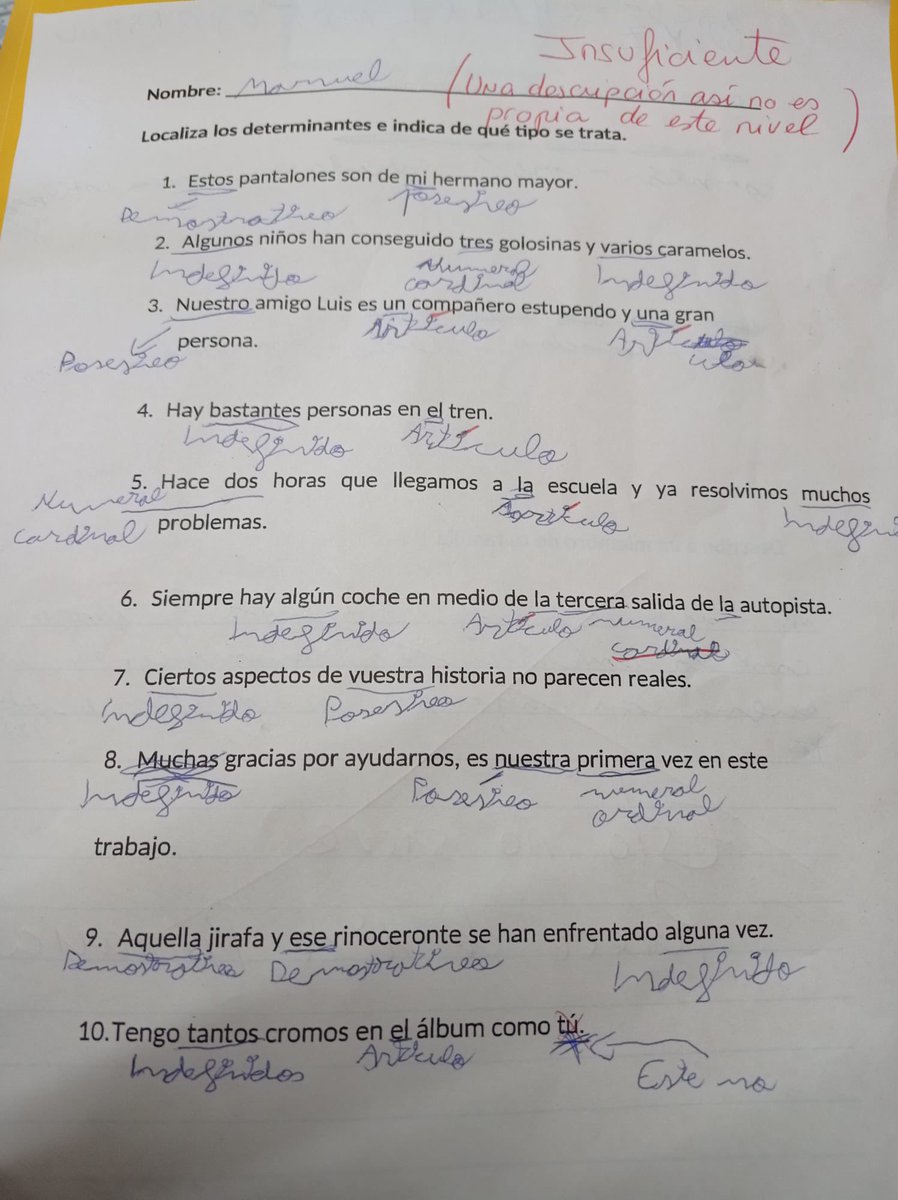 Insuficiente
Nombre: Manuel
(Una descripción así no es
propia de este nivel)
Localiza los determinantes e indica de qué tipo se trata.
1. Estos pantalones son de mi hermano mayor.
Demostrativo posesivo
2. Algunos niños han conseguido tres golosinas y varios caramelos.
Indefinido Numeral cardinal Indefinido
3. Nuestro amigo Luis es un compañero estupendo y una gran
Artículo Artículo
persona.
Posesivo
4. Hay bastantes personas en el tren.
Indefinido Artículo
5. Hace dos horas que llegamos a la escuela y ya resolvimos muchos
Numeral
cardinal
problemas.
Artículo
6. Siempre hay algún coche en medio de la tercera salida de la autopista.
Indefinido Artículo numeral
cardinal
7. Ciertos aspectos de vuestra historia no parecen reales.
Indefinido Posesivo
8. Muchas gracias por ayudarnos, es nuestra primera vez en este
Indefinido Posesivo numeral
ordinal
trabajo.
9. Aquella jirafa y ese rinoceronte se han enfrentado alguna vez.
Demostrativo Demostrativo Indefinido
10.Tengo tantos cromos en el álbum como tú.
Indefinidos Artículo Este no